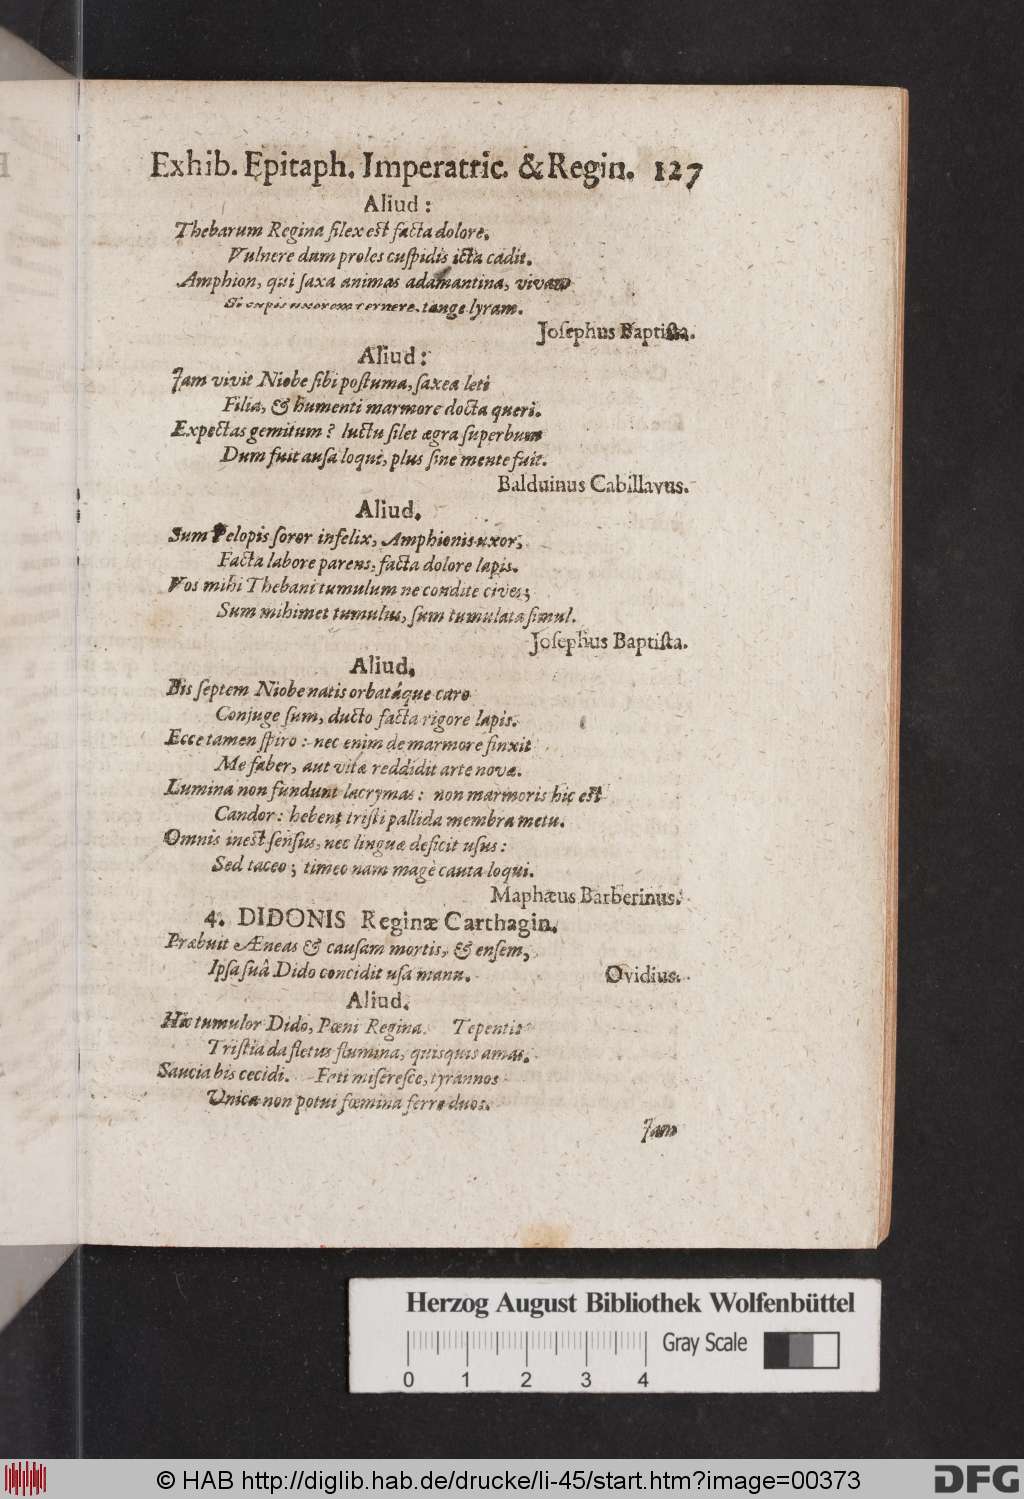 Exhib. Epitaph. Imperatric. & Regin. 127
Aliud:
Thebarum Regina ſilex eſt facta dolore,
Vulnere dum proles cuſpidis icta cadit.
Amphion, qui ſaxa animas adamantina, vivam
Si cupis uxorem cernere, tange lyram.
Joſephus Baptiſta.
Aliud:
Jam vivit Niobe ſibi poſtuma, ſaxea leti
Filia, & humenti marmore docta queri.
Expectas gemitum? luctu ſilet ægra ſuperbum
Dum fuit auſa loqui, plus ſine mente fuit.
Balduinus Cabillavus.
Aliud.
Sum Pelopis ſoror infelix, Amphionis uxor,
Facta labore parens, facta dolore lapis.
Vos mihi Thebani tumulum ne condite cives;
Sum mihimet tumulus, ſum tumulata ſimul.
Joſephus Baptiſta.
Aliud.
Bis ſeptem Niobe natis orbatáque caro
Conjuge ſum, ducto facta rigore lapis.
Ecce tamen ſpiro: nec enim de marmore finxit
Me faber, aut vitæ reddidit arte novæ.
Lumina non fundunt lacrymas: non marmoris hic eſt
Candor: hebent triſti pallida membra metu.
Omnis ineſt ſenſus, nec linguæ deficit uſus:
Sed taceo; timeo nam magè cauta loqui.
Maphæus Barberinus.
4. DIDONIS Reginæ Carthagin.
Præbuit Æneas & cauſam mortis, & enſem,
Ipſa ſuâ Dido concidit uſa manu. Ovidius.
Aliud.
Hic tumulor Dido, Pœni Regina. Tepentis
Triſtia da fletus flumina, quisquis amas.
Saucia bis cecidi. Fati miſereſce, tyrannos
Unica non potui fœmina ferre duos.
Jam
Herzog August Bibliothek Wolfenbüttel
Gray Scale
0 1 2 3 4
© HAB http://diglib.hab.de/drucke/li-45/start.htm?image=00373
DFG